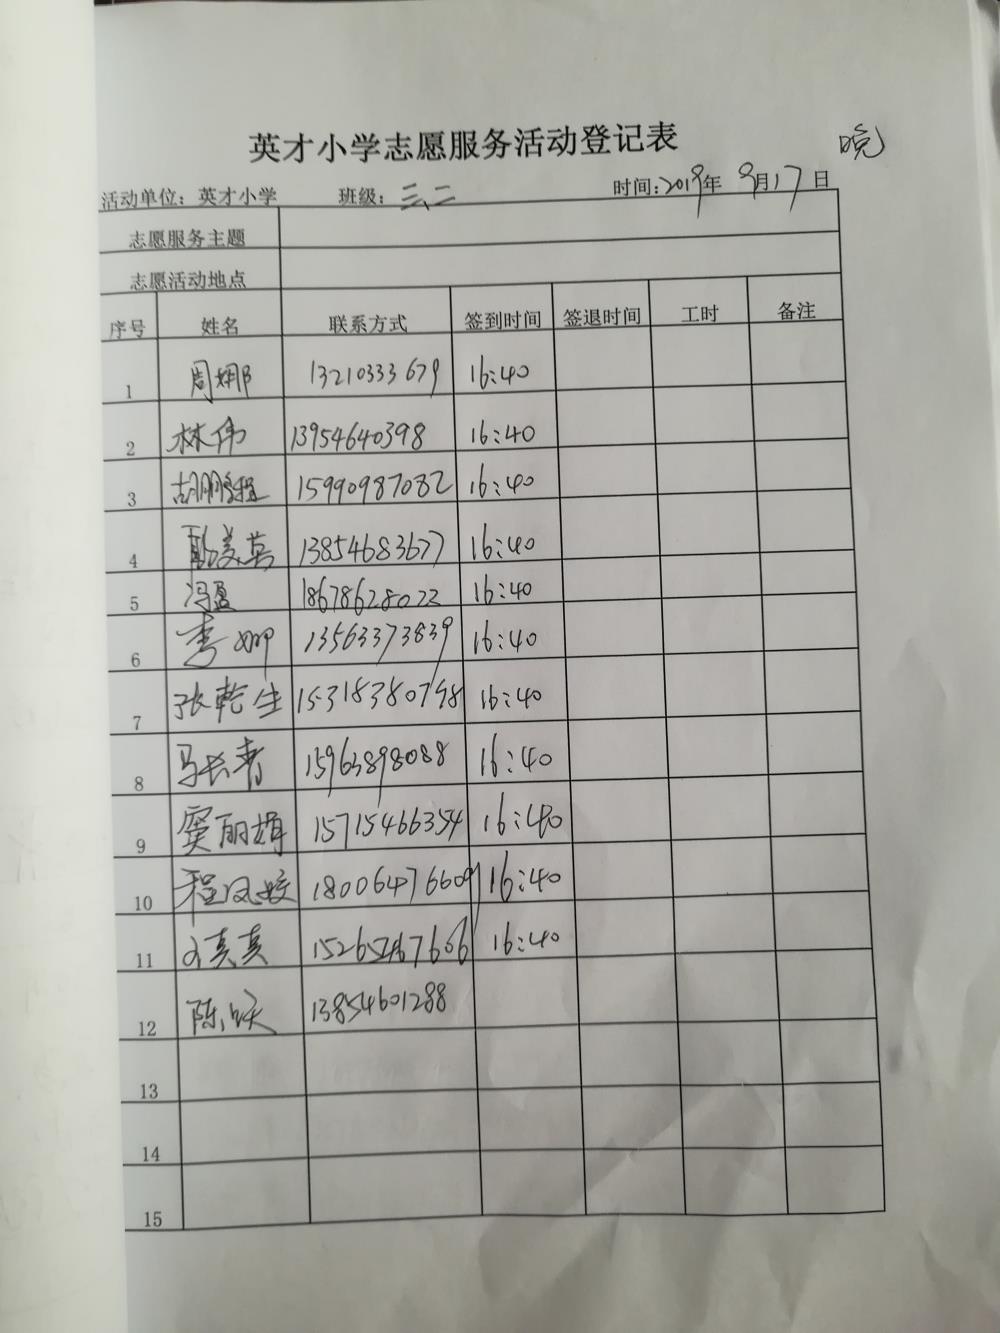 英才小学志愿服务活动登记表 晓
活动单位：英才小学 班级：三、二 时间：2019年 9月17日
志愿服务主题
志愿活动地点
序号 姓名 联系方式 签到时间 签退时间 工时 备注
1 周娜 13210333679 16:40
2 林伟 13954640398 16:40
3 胡鹏程 15990987082 16:40
4 13854683677 16:40
5 冯盈 18678628022 16:40
6 李娜 13563373839 16:40
7 张乾生 15318380798 16:40
8 马长青 15963898088 16:40
9 窦丽娟 15715466354 16:40
10 程凤姣 18006476609 16:40
11 真真 15265467606 16:40
12 陈 13854601288
13
14
15